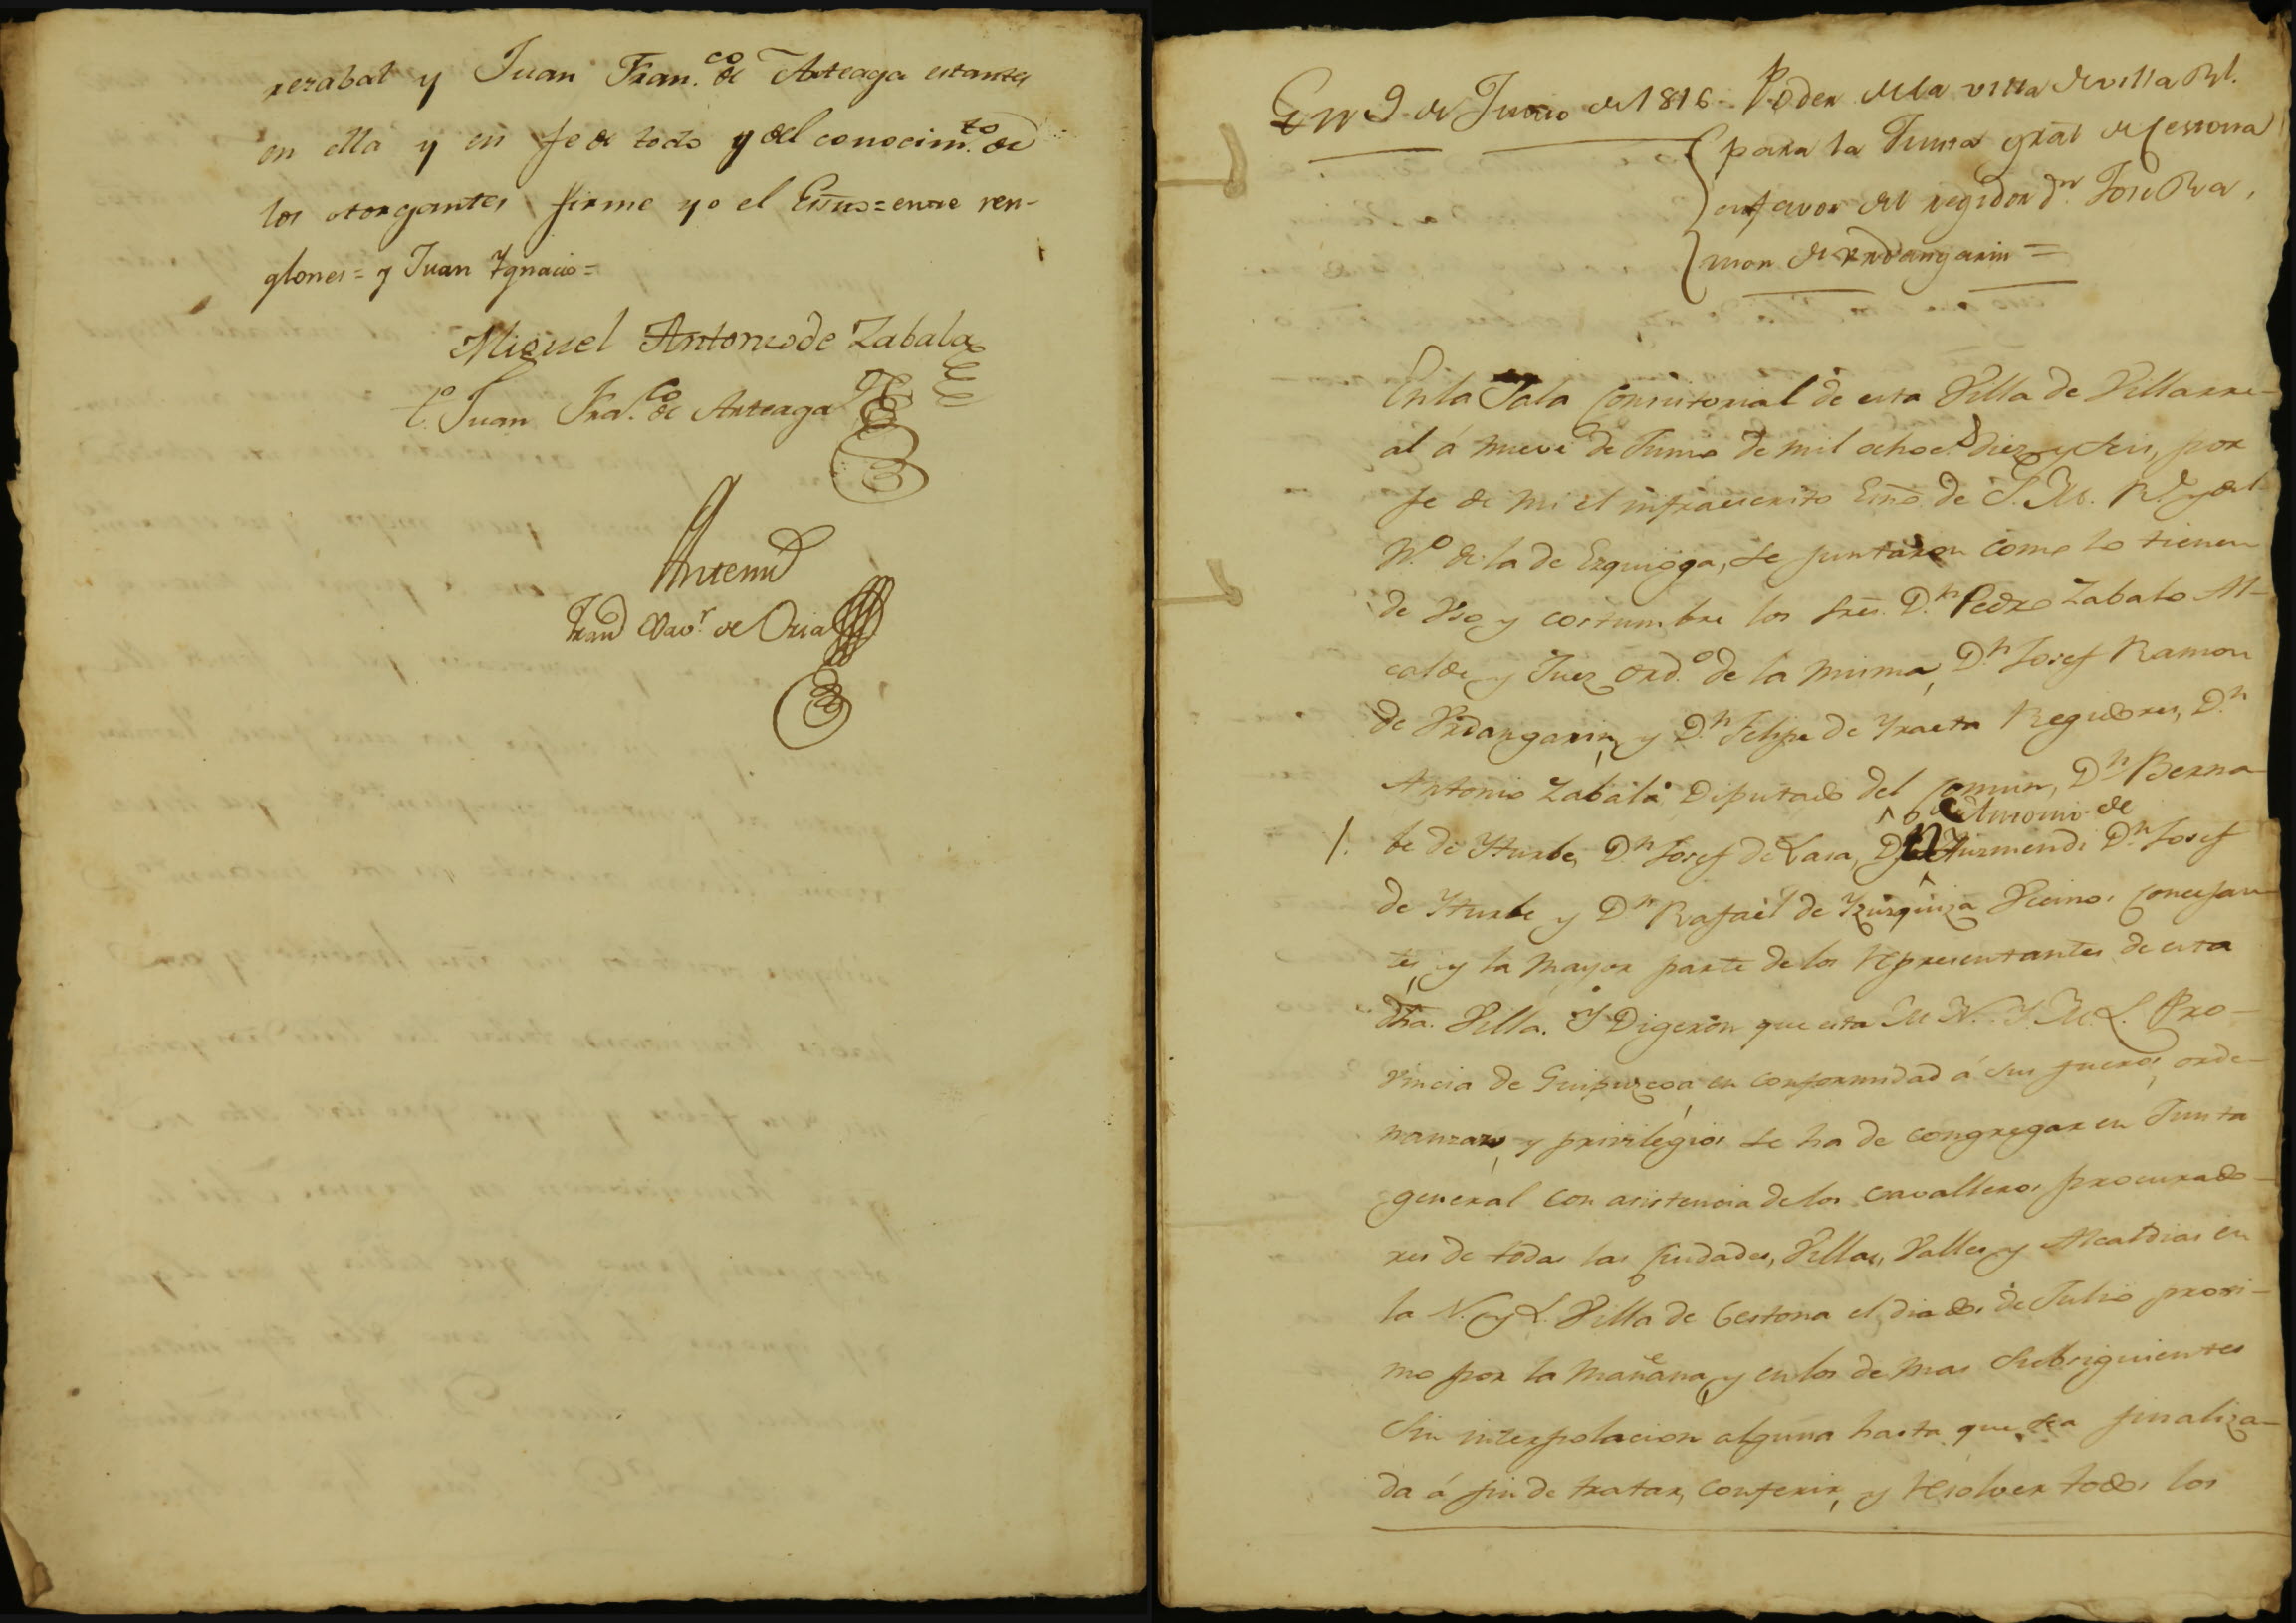 rezabal y Juan Fran.co de Arteaga estantes
en ella y en fe de todo y del conocim.to de
los otorgantes firme yo el Esño = entre ren-
glones = y Juan Ygnacio =
Miguel Antonio de Zabala
t.o Juan Fra.co de Arteaga
Antemi
Fran.co Xav.r de Oria
En 9 de Junio de 1816 Poder de la villa de villa Rl.
para la Junta gral de Cestona
en favor del regidor d.n Jose Ra,
mon de Urdangarin =
En la Sala Consistorial de esta Villa de Villarre-
al á nueve de Junio de mil ochoc.s diez y seis, por
fe de mi el infraescrito Esño. de S. M. Rl. y del
N.o de la de Ezquioga, se juntaron como lo tienen
de Uso y costumbre los Sres. D.n Pedro Zabalo Al-
calde y Juez ord.o de la misma, D.n Josef Ramon
de Urdangarin, y D.n Felipe de Yraeta Regidores, D.n
Antonio Zabala Diputado del Comun, D.n Berna-
be de Yturbe, D.n Josef de Lasa, D.n Antonio de Aurmendi D.n Josef
de Yturbe y D.n Rafael de Yzuzquiza Vecinos Concejan-
tes, y la mayor parte de los representantes de esta
dha. Villa. Y Digeron que esta M. N. Y. M. L. Pro-
vincia de Guipuzcoa, en conformidad á sus fueros, orde-
nanzas, y privilegios se ha de congregar en Junta
general con asistencia de los cavalleros procurado-
res de todas las Ciudades, Villas, Valles y Alcaldias en
la N. y L. Villa de Cestona el dia dos de Julio proxi-
mo por la mañana, y en los de mas Subsiguientes
Sin interpolacion alguna hasta que sea finaliza-
da á fin de tratar, conferir, y resolver todos los